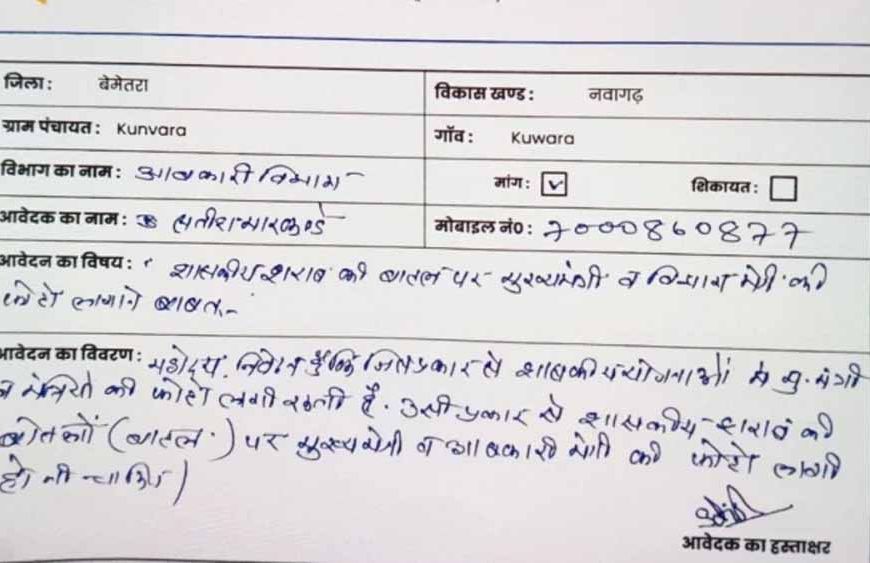 जिला: बेमेतरा
विकास खण्ड: नवागढ़
ग्राम पंचायत: Kunvara
गॉव: Kuwara
विभाग का नाम: आबकारी विभाग
मांग: ☑ शिकायत: ☐
आवेदक का नाम: सतीश मारकण्डे
मोबाइल नं०: 7000860877
आवेदन का विषय: शासकीय शराब की बातल पर मुख्यमंत्री व विभाग मंत्री की
फोटो लगाने बाबत.-
आवेदन का विवरण: महोदय, निवेदन है कि जिस प्रकार से शासकीय योजनाओं में मु. मंत्री
व मंत्रियो की फोटो लगी रहती है. उसी प्रकार से शासकीय शराब की
बोतलों (बातल.) पर मुख्यमंत्री व आबकारी मंत्री की फोटो लगी
होनी चाहिए।
आवेदक का हस्ताक्षर